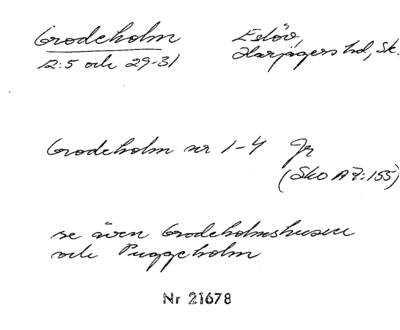 Grodeholm Eslöv,
12:5 och 29-31 Harjagers hd, Sk.
Grodeholm nr 1-4 Gr
(Sko A 7:155)
se även Grodeholmshusen
och Puggeholm
Nr 21678